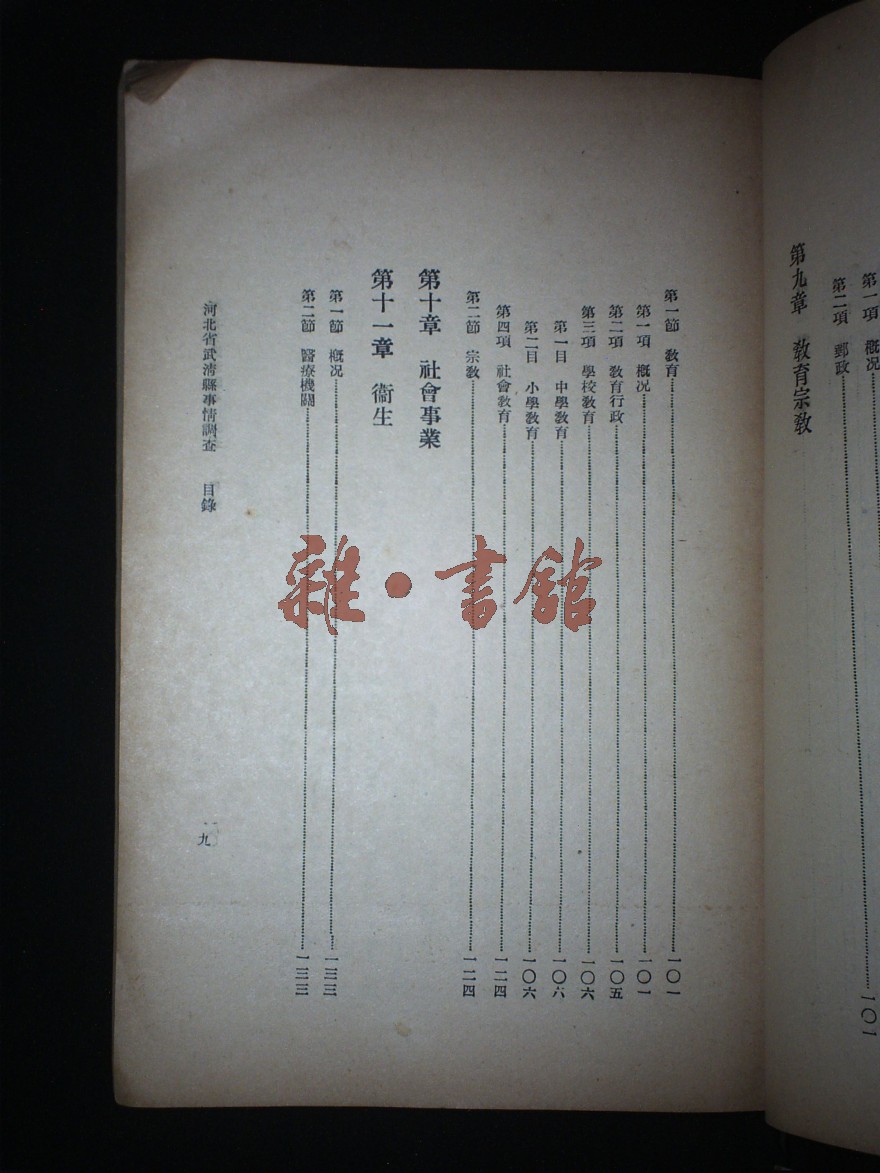 第一項 概況
第二項 郵政……一〇一
第九章 教育宗教
第一節 教育……一〇一
第一項 概況……一〇一
第二項 教育行政……一〇五
第三項 學校教育……一〇六
第一目 中學教育……一〇六
第二目 小學教育……一〇六
第四項 社會教育……一二四
第二節 宗教……一二四
第十章 社會事業
第十一章 衞生
第一節 概況……一三三
第二節 醫療機關……一三三
河北省武淸縣事情調查 目錄
九
雜·書館